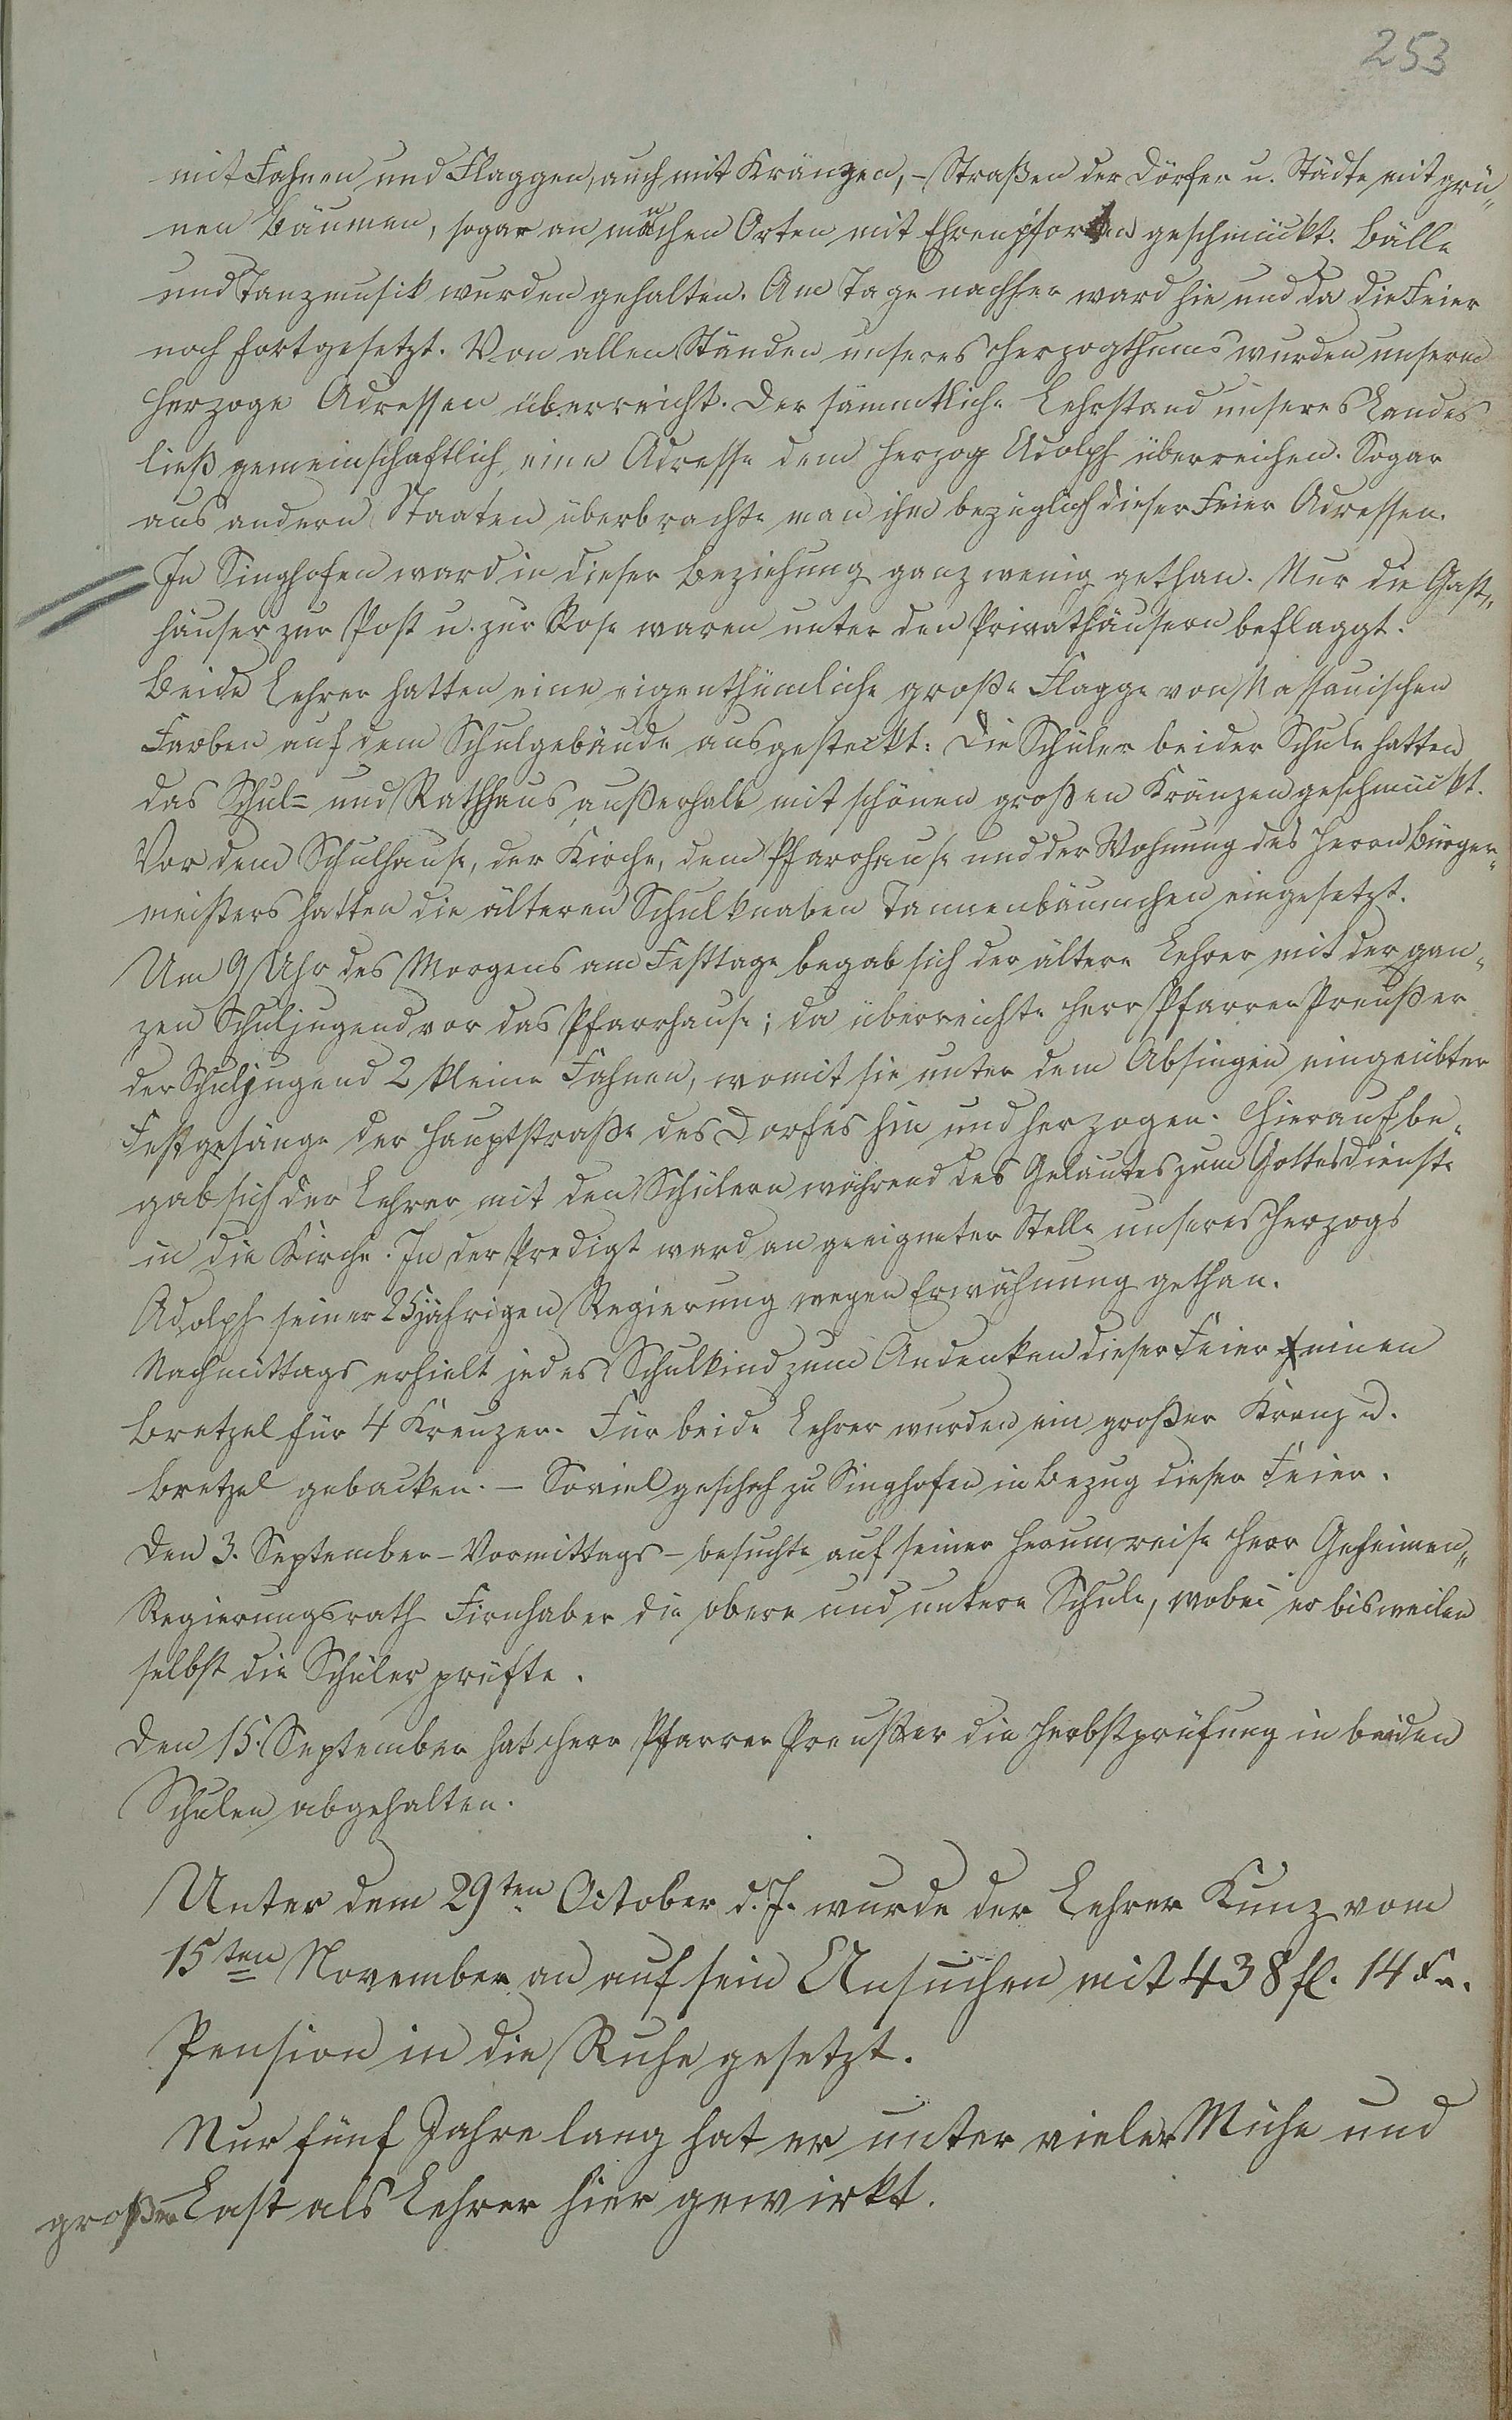 253
mit Fahnen und Flaggen, auch mit Kränzen, – Straßen der Dörfer u. Städte mit grü„
nen Bäumen, sogar an manchen Orten mit Ehrenpforten geschmückt. Bälle
und Tanzmusik wurden gehalten. Am Tage nachher ward hie und da die Feier
noch fortgesetzt. Von allen Ständen unseres Herzogthums wurden unserm
Herzoge Adressen überreicht. Der sämmtliche Lehrstand unseres Landes
ließ gemeinschaftlich eine Adresse dem Herzog Adolph überreichen. Sogar
aus andern Staaten überbrachte man ihm bezüglich dieser Feier Adressen.
In Singhofen ward in dieser Beziehung ganz wenig gethan. Nur die Gast„
häuser zur Post u. zur Rose waren unter den Privathäusern beflaggt.
Beide Lehrer hatten eine eigenthümliche große Flagge von Nassauischen
Farben auf dem Schulgebäude ausgesteckt. Die Schüler beider Schule hatten
das Schul= und Rathhaus außerhalb mit schönen großen Kränzen geschmückt.
Vor dem Schulhause, der Kirche, dem Pfarrhause und der Wohnung des Herrn Bürger„
meisters hatten die älteren Schulknaben Tannenbäumchen eingesetzt.
Um 9 Uhr des Morgens am Festtage begab sich der ältere Lehrer mit der gan„
zen Schuljugend vor das Pfarrhause; da überreichte Herr Pfarrer Preußer
der Schuljugend 2 kleine Fahnen, womit sie unter dem Absingen eingeübter
Festgesänge der Hauptstraße des Dorfes hin und her zogen. Hierauf be„
gab sich der Lehrer mit den Schülern während des Geläutes zum Gottesdienste
in die Kirche. In der Predigt ward an geeigneter Stelle unseres Herzogs
Adolph seiner 25jährigen Regierung wegen Erwähnung gethan.
Nachmittags erhielt jedes Schulkind zum Andenken dieser Feier einen
Bretzel für 4 Kreuzer. Für beide Lehrer wurden ein großer Kranz u.
Bretzel gebacken. – Soviel geschah zu Singhofen in Bezug dieser Feier.
Den 3. September – Vormittags – besuchte auf seiner Herumreise Herr Geheimen„
Regierungsrath Firnhaber die obere und untere Schule, wobei er bisweilen
selbst die Schüler prüfte.
Den 15. September hat Herr Pfarrer Preußer die Herbstprüfung in beiden
Schulen abgehalten.
Unter dem 29ten October d. J. wurde der Lehrer Kunz vom
15ten November an auf sein Ansuchen mit 438 fl. 14 Kr.
Pension in die Ruhe gesetzt.
Nur fünf Jahre lang hat er unter vieler Mühe und
großer Last als Lehrer hier gewirkt.